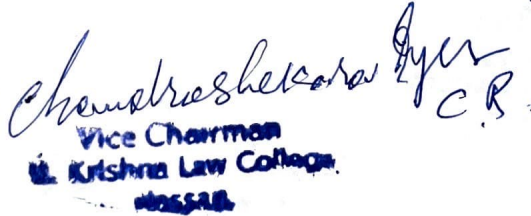 Chandrashekara Iyer
C.R
Vice Chairman
M. Krishna Law College
Hassan